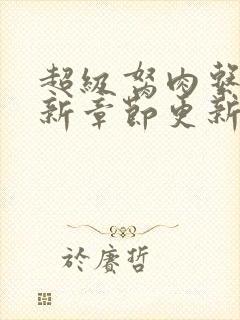 超級弩肉繫
新章節更新
於賡哲